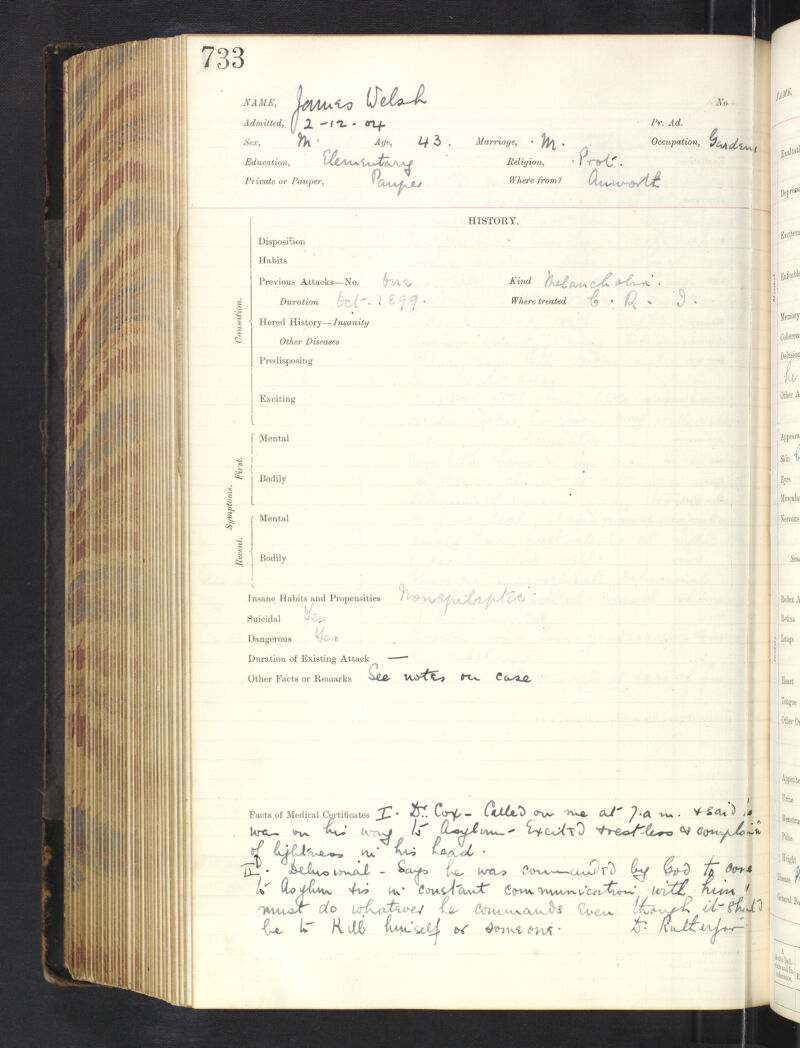 733
NAME, James Welsh No.
Admitted, 2-12-04 Pr. Ad.
Sex, M. Age, 43. Marriage, M. Occupation, Garden
Education, Elementary Religion, Prot.
Private or Pauper, Pauper Where from? Anworth
HISTORY.
Disposition
Habits
Previous Attacks—No. One Kind Melancholia.
Duration Oct. 1899. Where treated C. R. I.
Causation.
Hered History—Insanity
Other Diseases
Predisposing
Exciting
Symptoms.
First.
Mental
Bodily
Recent.
Mental
Bodily
Insane Habits and Propensities Non epileptic.
Suicidal Yes
Dangerous Yes
Duration of Existing Attack —
Other Facts or Remarks See notes on case
Facts of Medical Certificates I. Dr. Cox - Called on me at 7.a.m. & said
was on his way to Asylum - Excited & restless & complain
of lightness in his head.
II. Delusional - Says he was commanded by God to come
to Asylum & is in constant communication with him &
must do whatever he commands even though it should
be to Kill himself or someone. Dr. Rutherfor
NAME,
Exaltati
Depress
Excitem
Enfeeble
Memory
Coheren
Delusion
he
Other A
Appeara
Skin
Eyes
Muscula
Nervous
Sen
Reflex A
Retina
Lungs
Heart
Tongue
Other Or
Appetite
Urine
Menstru
Pulse
Height
Disease
General Bo